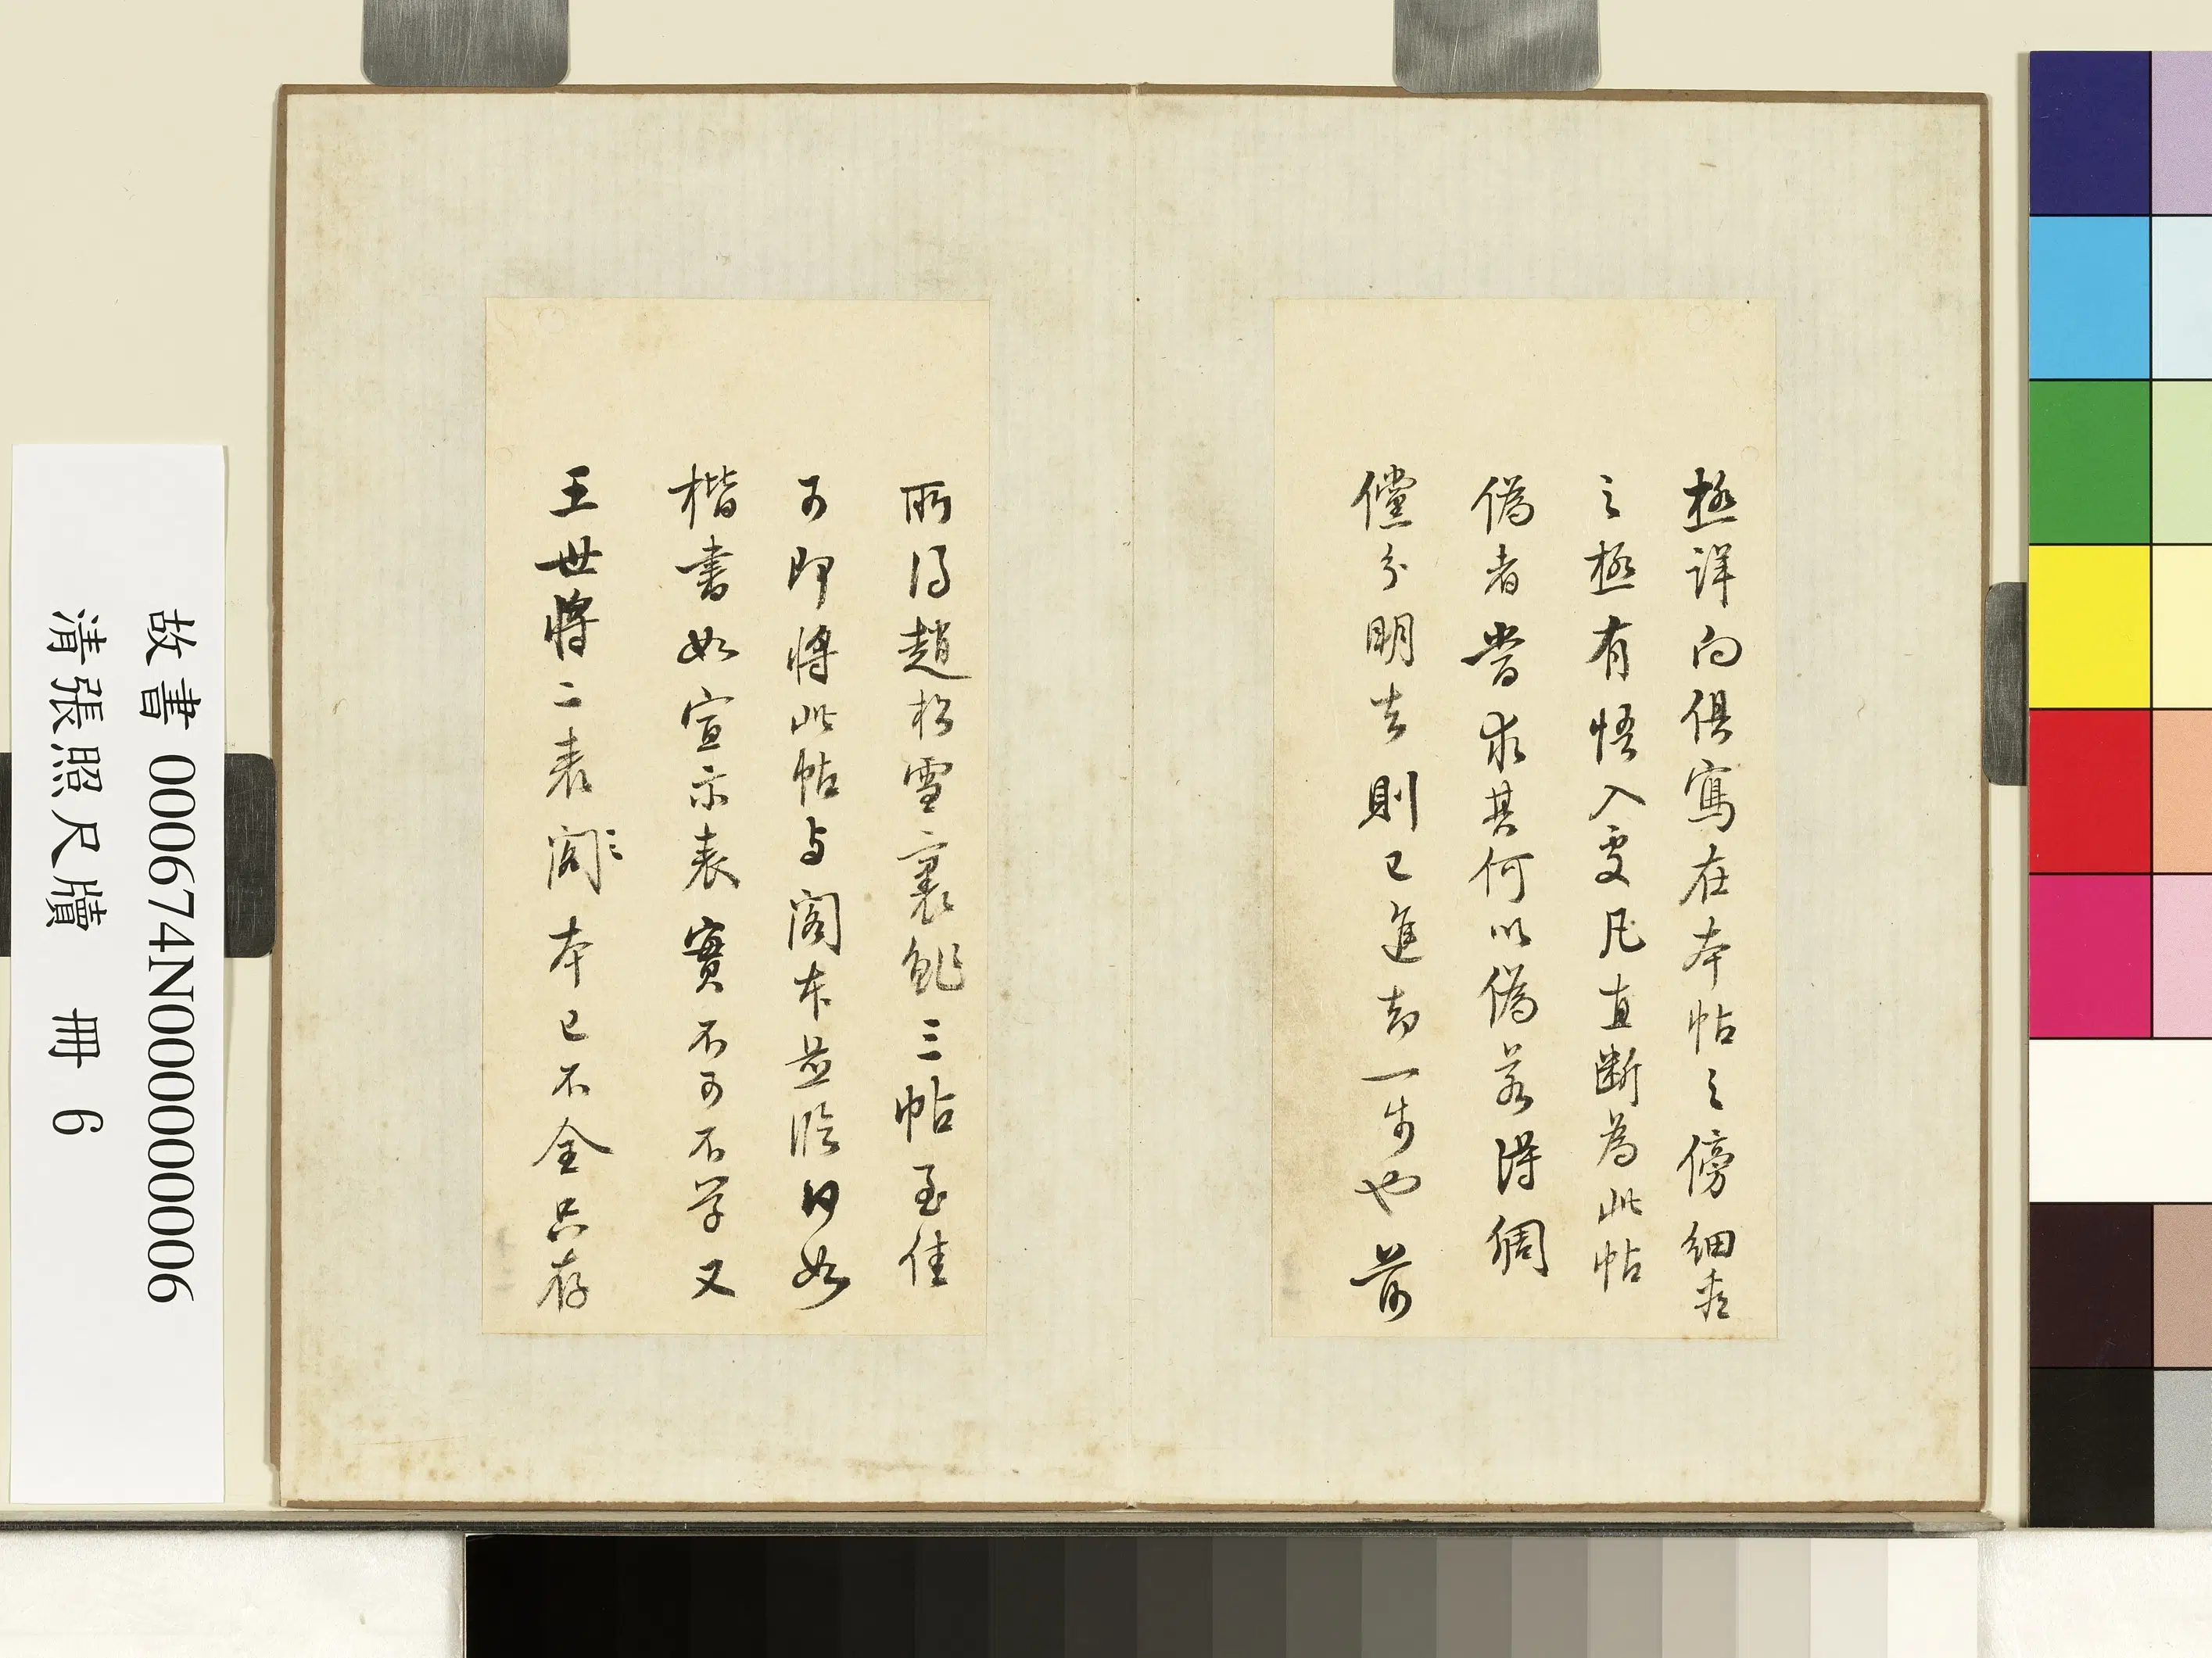 極詳向俱寫在本帖之傍細處
之極有悟入處凡直斷為此帖
偽者當求其何以偽若得個
儻分明去則已進却一步也前
所得趙松雪裹鮓三帖至佳
可即將此帖与閣本並臨日如
楷書如宣示表實不可不學又
王世將二表閣本已不全只存
故書 000674N000000006
清張照尺牘 冊 6